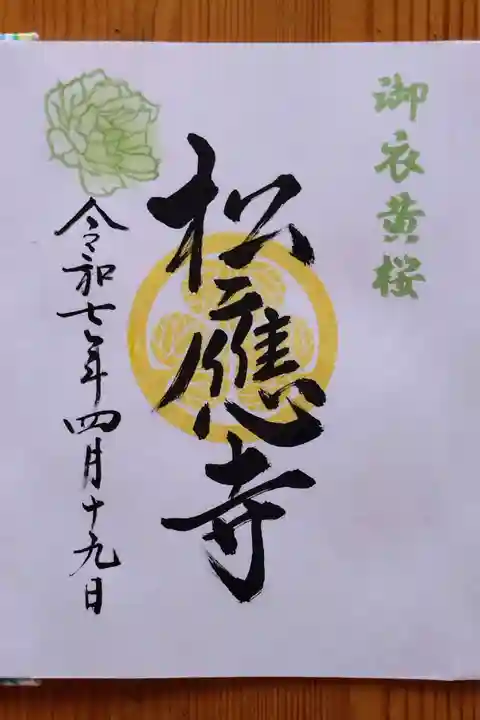 御衣黄桜
松應寺
令和七年四月十九日